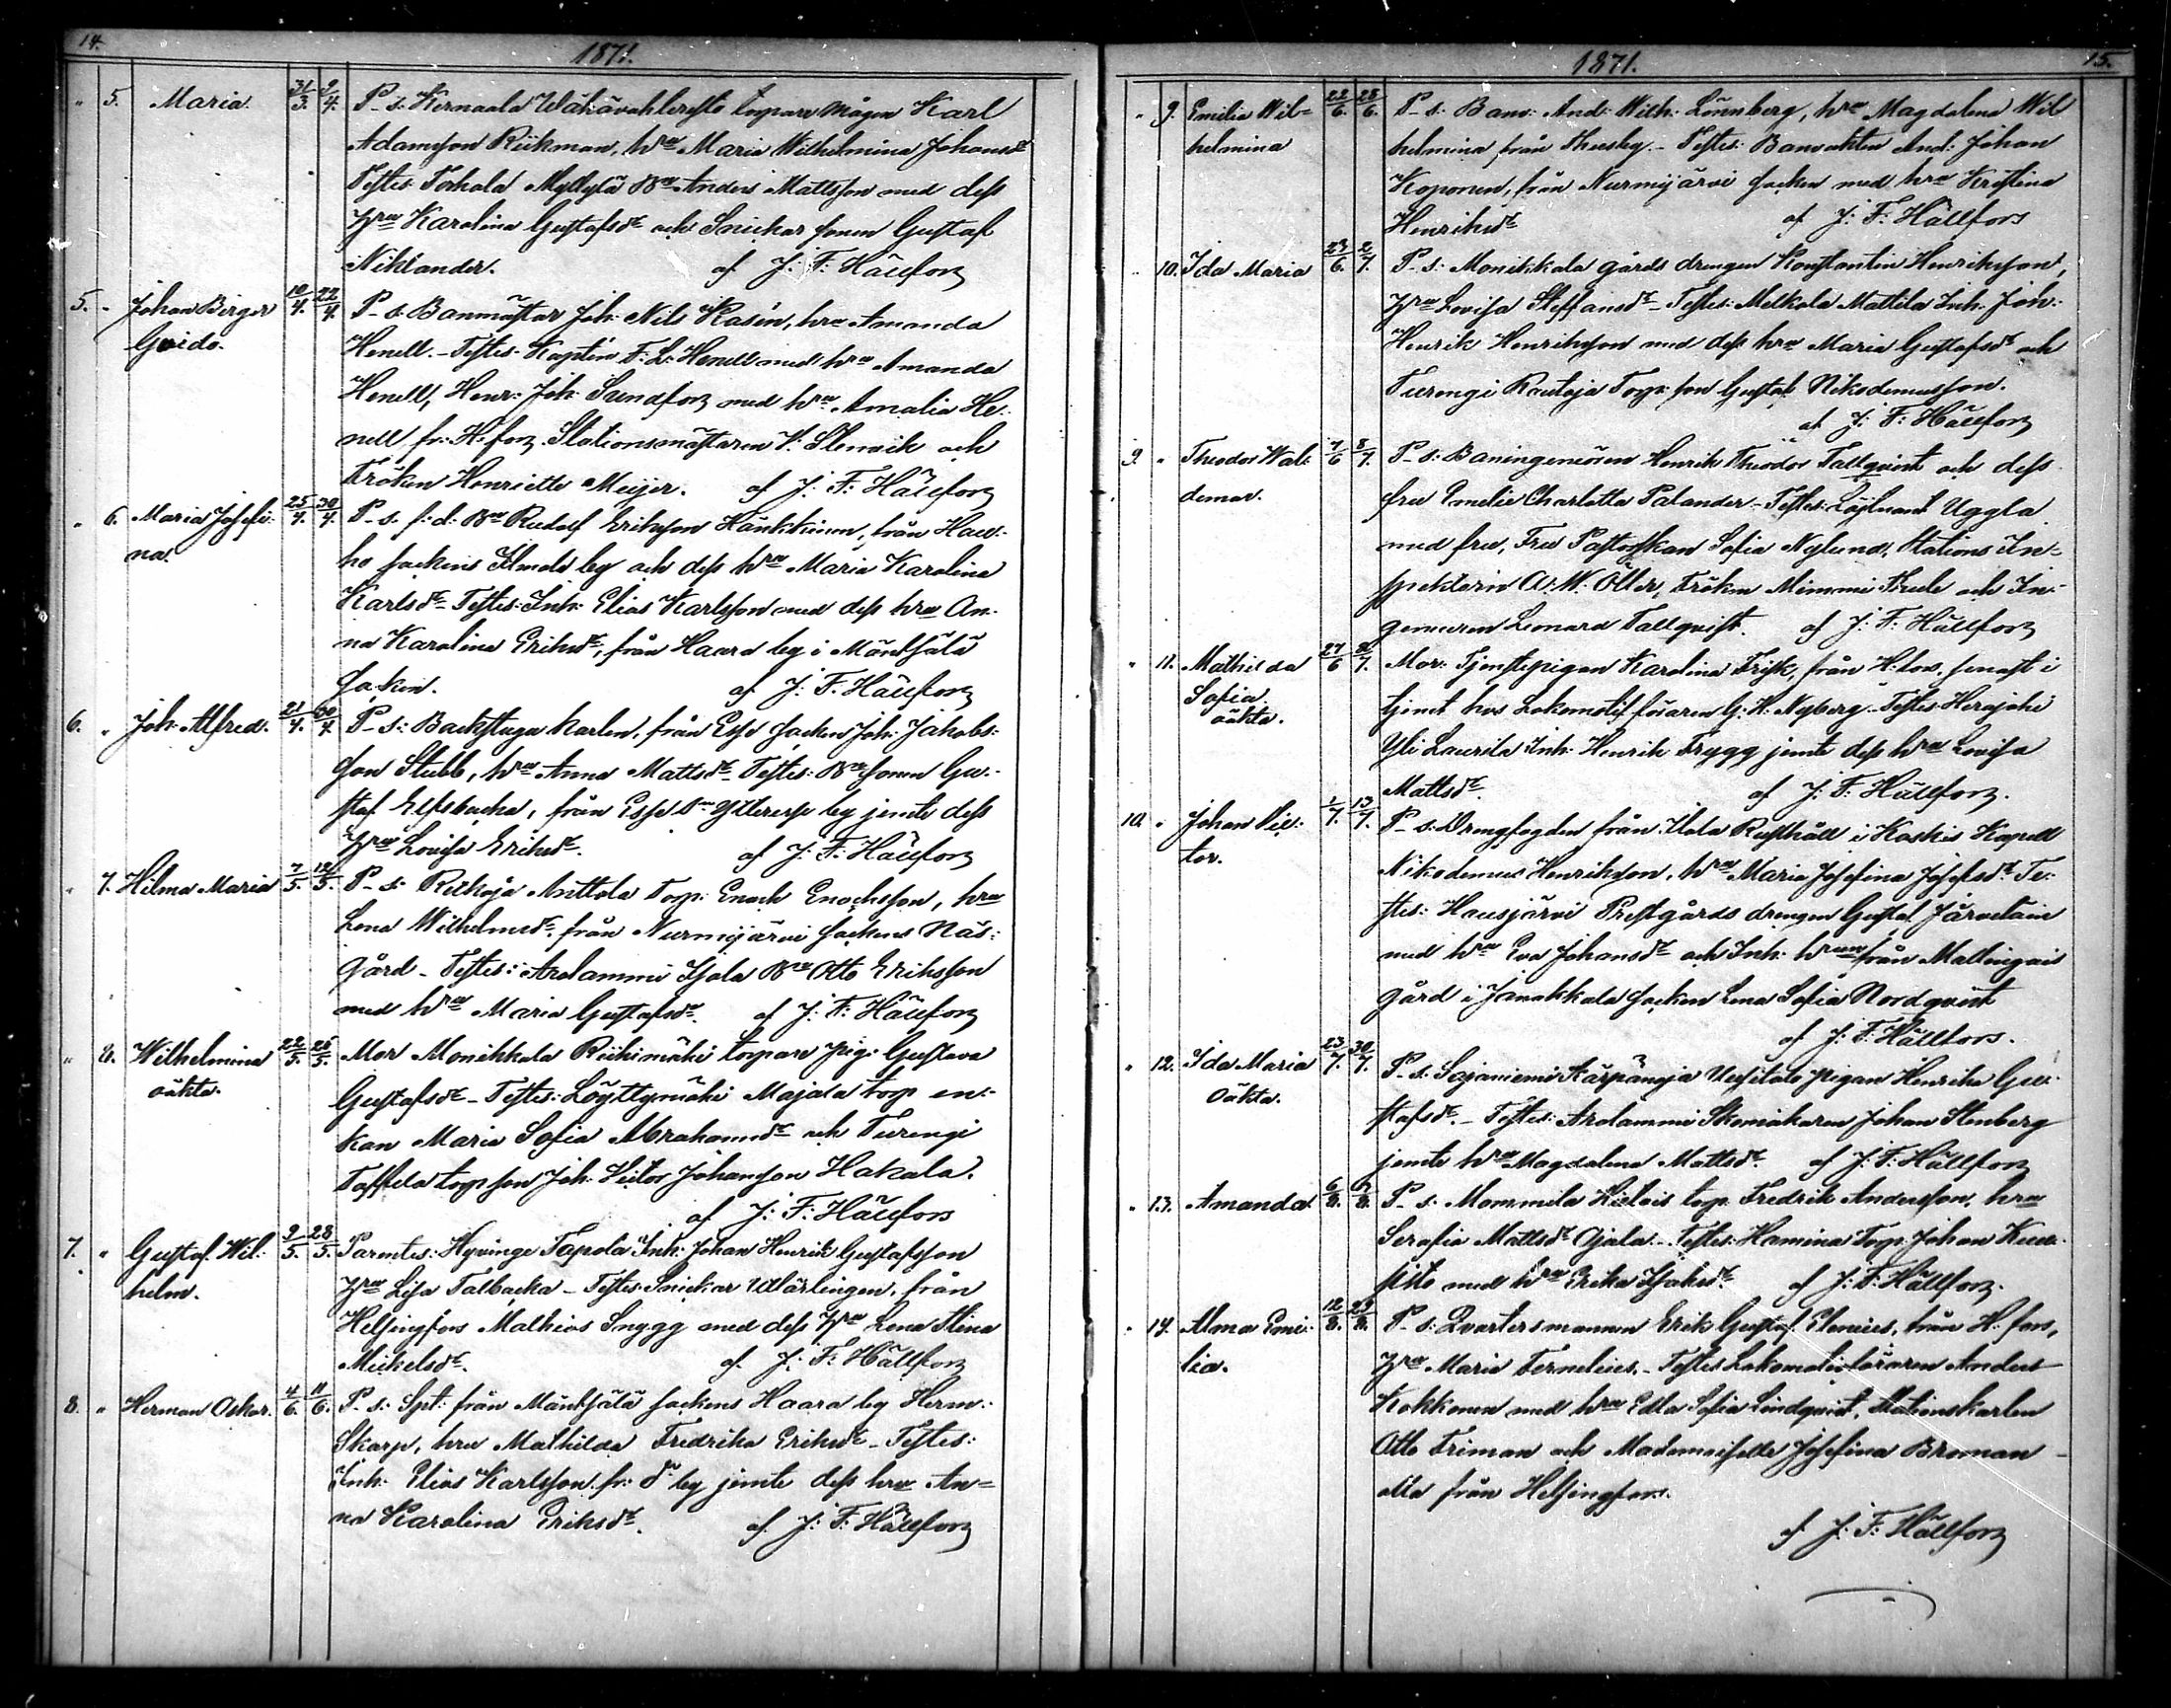 14.
1871.
" 5. Maria. 31/3. 9/4. P_s: Kernaala Wähävahleristo torpare mågen Karl
Adamsson Rickman, hru Maria Wilhelmina Johansdr
Testes: Torhola Myllylä Bn Anders Mattsson med dess
hru Karolina Gustafsdr och Snickar sonen Gustaf
Niklander. af J: F: Hällfors
5. " Johan Birger 10/4. 22/4. P_s: Banmästar Joh: Nils Kasén, hru Amanda
Guido.
Henell._ Testes: Kapten F: L: Henell med hru Amanda
Henell, Henr: Joh: Sundfors med hru Amalia He-
nell fr: H:fors. Stationsmästaren V: Stenvik och
Fröken Henriette Meijer. af J: F: Hällfors
" 6. Maria Josefi- 25/4. 30/4. P_s. f:d: Bn Rudolf Eriksson Hänkkinen, från Hau-
na.
ho sockens by och dess hru Maria Karolina
Karlsdr_ Testes: Inh: Elias Karlsson med dess hru An-
na Karolina Eriksdr, från Haara by i Mäntsälä
socken. af J: F. Hällfors
6. " Joh: Alfred. 21/4. 30/4. P_s: Backstugu karlen, från Esse socken Joh: Jakobs-
son Stubb, hru Anna Mattsdr_ Testes: Bn sonen Gu-
staf Elfsbacka, från Esse sn Ytteresse by jemte dess
hru Lovisa Eriksdr. af J: F: Hällfors
" 7. Hilma Maria 7/5. 14/5. P_s: Anttola Torp: Enoch Enochsson, hru
Lena Wilhelmsdr. från Nurmijärvi sockens Näs-
gård _ Testes: Arolammi Isola Bn Otto Eriksson
med hru Maria Gustafsdr. af J: F: Hällfors
" 8. Wilhelmina 22/5. 28/5. Mor Monikkala Riihimäki torpare pig: Gustava
oäkta.
Gustafsdr_ Testes: Löyttymäki Majala torp en-
kan Maria Sofia Abrahamsdr och Turengi
torp son Joh: Victor Johansson Hakala.
af J: F: Hällfors
7. " Gustaf Wil- 9/5. 28/5. Parentes: Hyvinge Tapola Inh: Johan Henrik Gustafsson
helm.
hru Lisa Talbacka _ Testes: Snickar Lärlingen, från
Helsingfors Mathias Snygg med dess hru Lena Stina
Mickelsdr. af J: F: Hällfors
8. " Herman Oskar. 4/6. 11/6. P_s: Spt: från Mäntsälä sockens Haara by Herm:
Skarp, hru Mathilda Fredrika Eriksdr_ Testes:
Inh: Elias Karlsson fr: do by jemte dess hru An-
na Karolina Eriksdr. af J: F: Hällfors
1871. 15.
" 9. Emilia Wil- 22/6. 28/6. P_s: Banv: And: Wilh: Lönnberg, hru Magdalena Wil
helmina
helmina från Thusby._ Testes: Banvakten And: Johan
Koponen, från Nurmijärvi socken med hru Kristina
Henriksdr af J: F: Hällfors
" 10. Ida Maria 23/6. 2/7. P_s: Monikkala gårds drengen Konstantin Henriksson,
hru Lovisa Steffansdr_ Testes: Melkola Mattila Inh: Joh:
Henrik Henriksson med dess hru Maria Gustafsdr och
Turengi Rautoja Torp: son Gustaf Nikodemusson.
af J: F: Hällfors
9. " Theodor Wal- 7/6 8/7. P_s: Baningeniören Henrik Theodor Tallqvist och dess
demar.
fru Emelie Charlotta Palander_ Testes: Löjtnant Uggla
med fru, Fru Pastorskan Sofia Nylund, Stations In-
spektorn A: W: Öller, Fröken Mimmi Thule och In-
genieuren Leonard Tallqvist. af J: F: Hällfors
" 11. Mathilda 27/6 9/7. Mor: Tjenstepigan Karolina Frisk, från H:fors, senast i
Sofia
oäkta.
tjenst hos Lokomotif föraren G: H: Nyberg_ Testes: Herajoki
Yli Laurila Inh: Henrik Trygg jemte dess hru Lovisa
Mattsdr. af J: F: Hällfors.
10. " Johan Vic- 1/7. 13/7. P_s: Drengfogden från Rusthåll i Koskis Kapell
tor.
Nikodemus Henriksson, hru Maria Josefina Josefsdr Te-
stes: Hausjärvi Prestgårds drengen Gustaf Järveläin
med hru Eva Johansdr och Inh: hrun från Mallingais
gård i Janakkala socken Lena Sofia Nordqvist
af J: F: Hällfors.
" 12. Ida Maria 23/7. 30/7. P_s: Sajaniemi Kärpänoja Uusitalo pigan Henrika Gu-
Oäkta.
stafsdr._ Testes: Arolammi Skomakaren Johan Stenberg
jemte hru Magdalena Mattsdr. af J: F: Hällfors
" 13. Amanda. 6/8. P_s: Mommila Hietois torp. Fredrik Andersson, hru
Serafia Mattsdr Ojala_ Testes: Hamina Torp. Johan Kuu-
sisto med hru Erika Isaksdr. af J: F: Hällfors.
" 14. Alma Emi- 12/8. 29/8. P_s: Qvartersmannen Erik Gustaf Clenius, från H:fors,
lia.
hru Maria Ferneleius._ Testes: Lokomotivföraren Anders
Kokkonen med hru Edla Sofia Lindqvist, Stationskarlen
Otto Friman och Mademoiselle Josefina Broman _
alla från Helsingfors.
af J: F: Hällfors